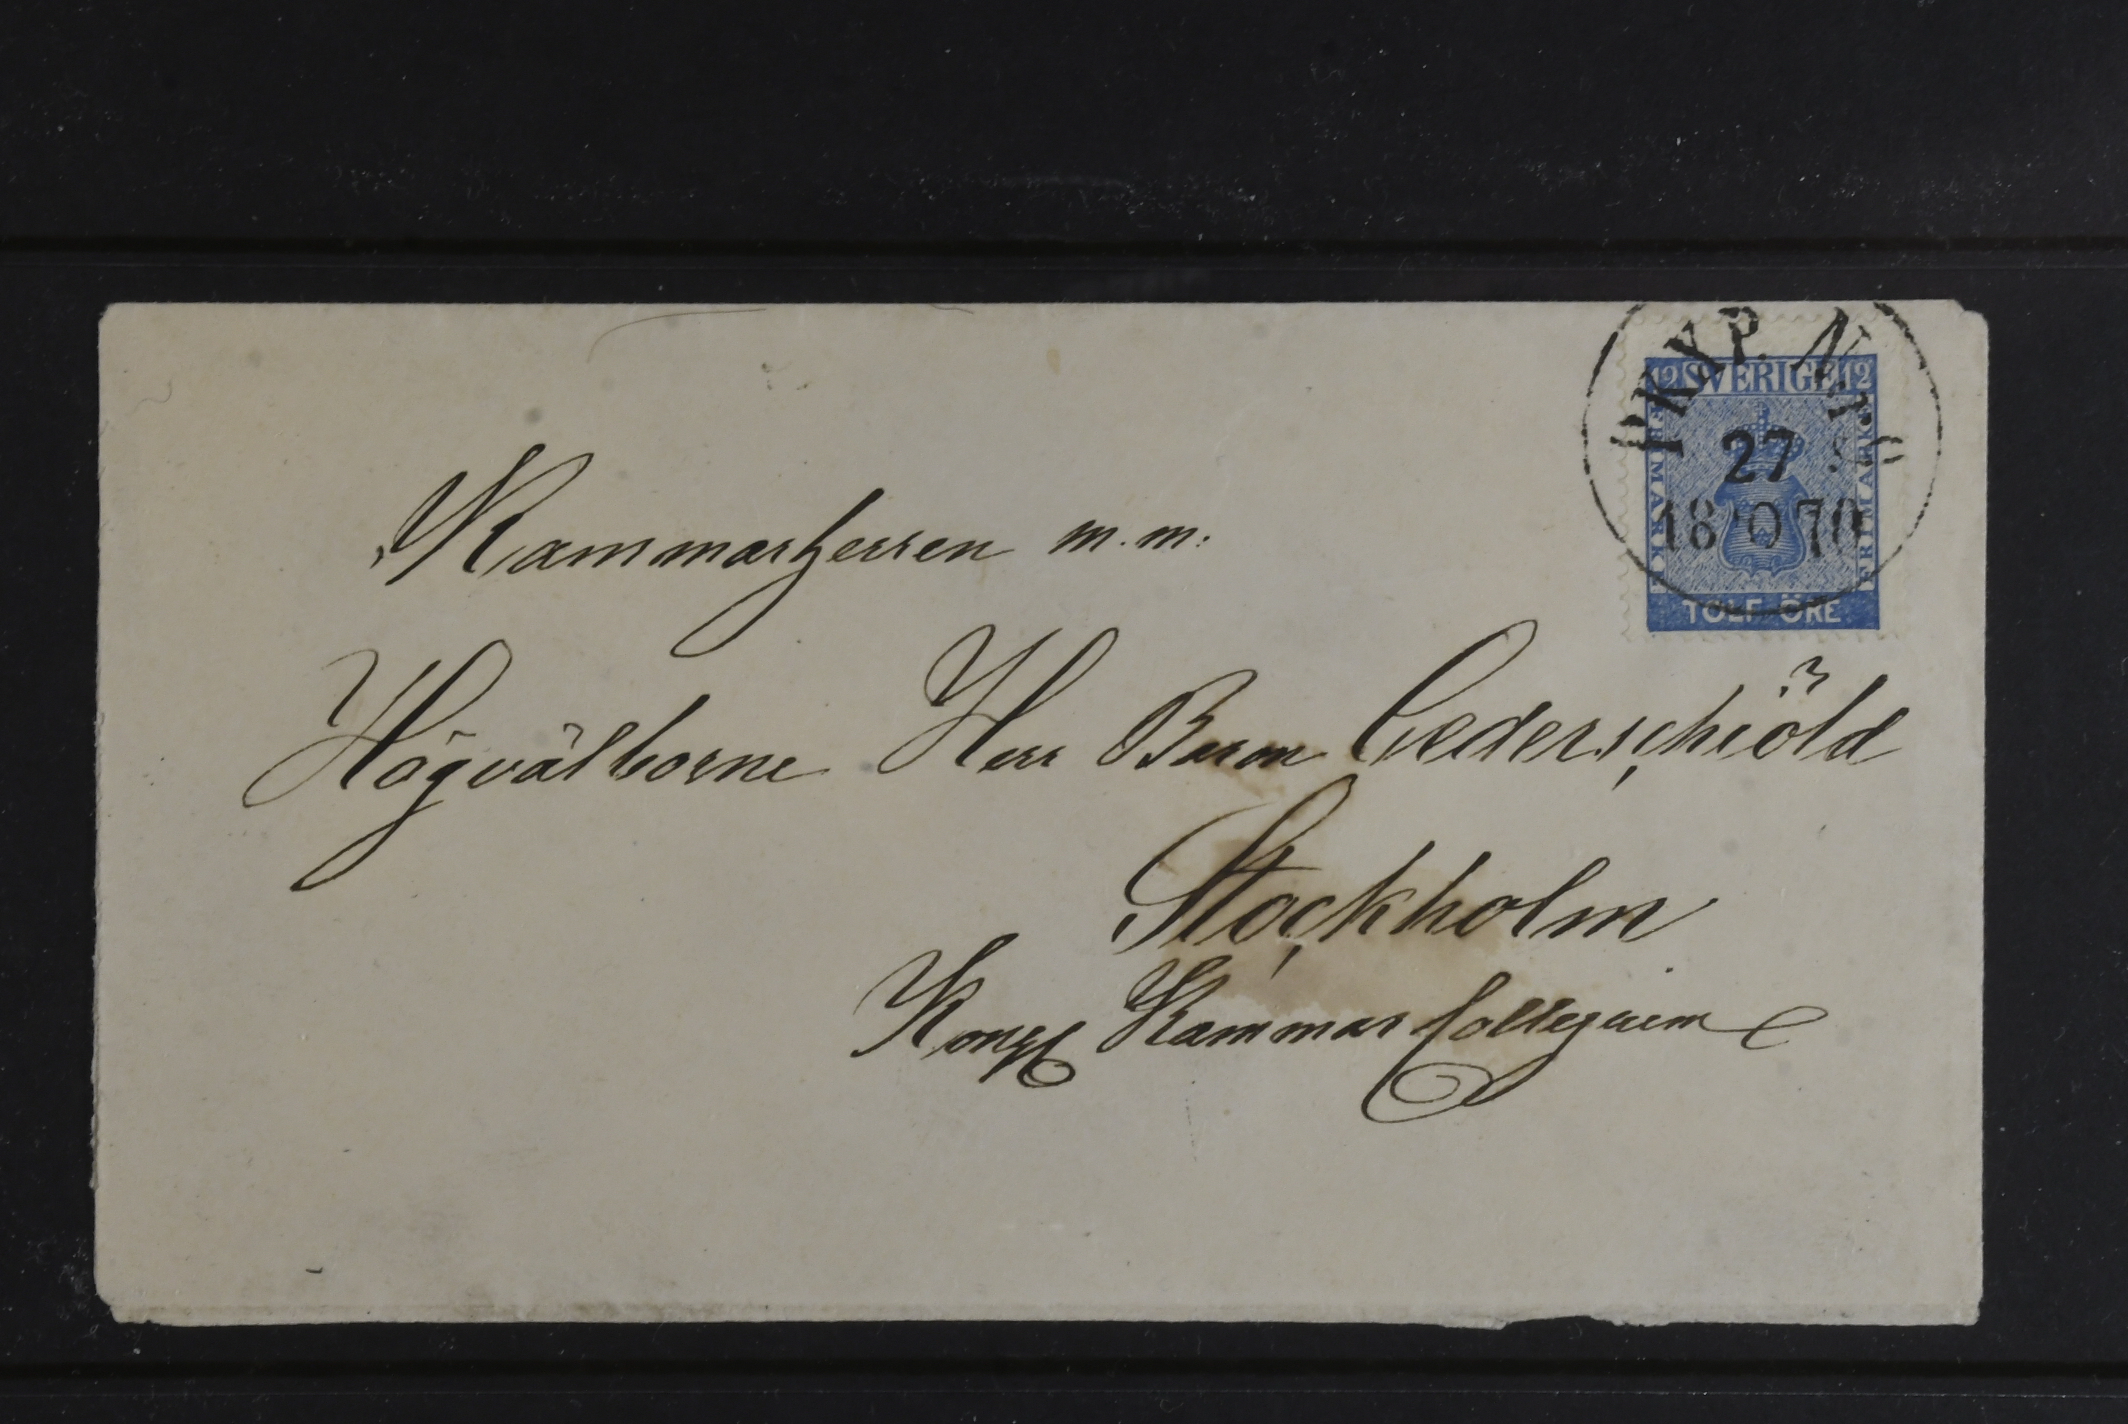 PKXP. Nr 
27
1870
12 SVERIGE 12
FRIMÄRKE
FRIMÄRKE
TOLF ÖRE
Kammarherren m.m.
Högvälborne Herr Baron Cederschiöld
Stockholm
Kongl Kammar Collegium